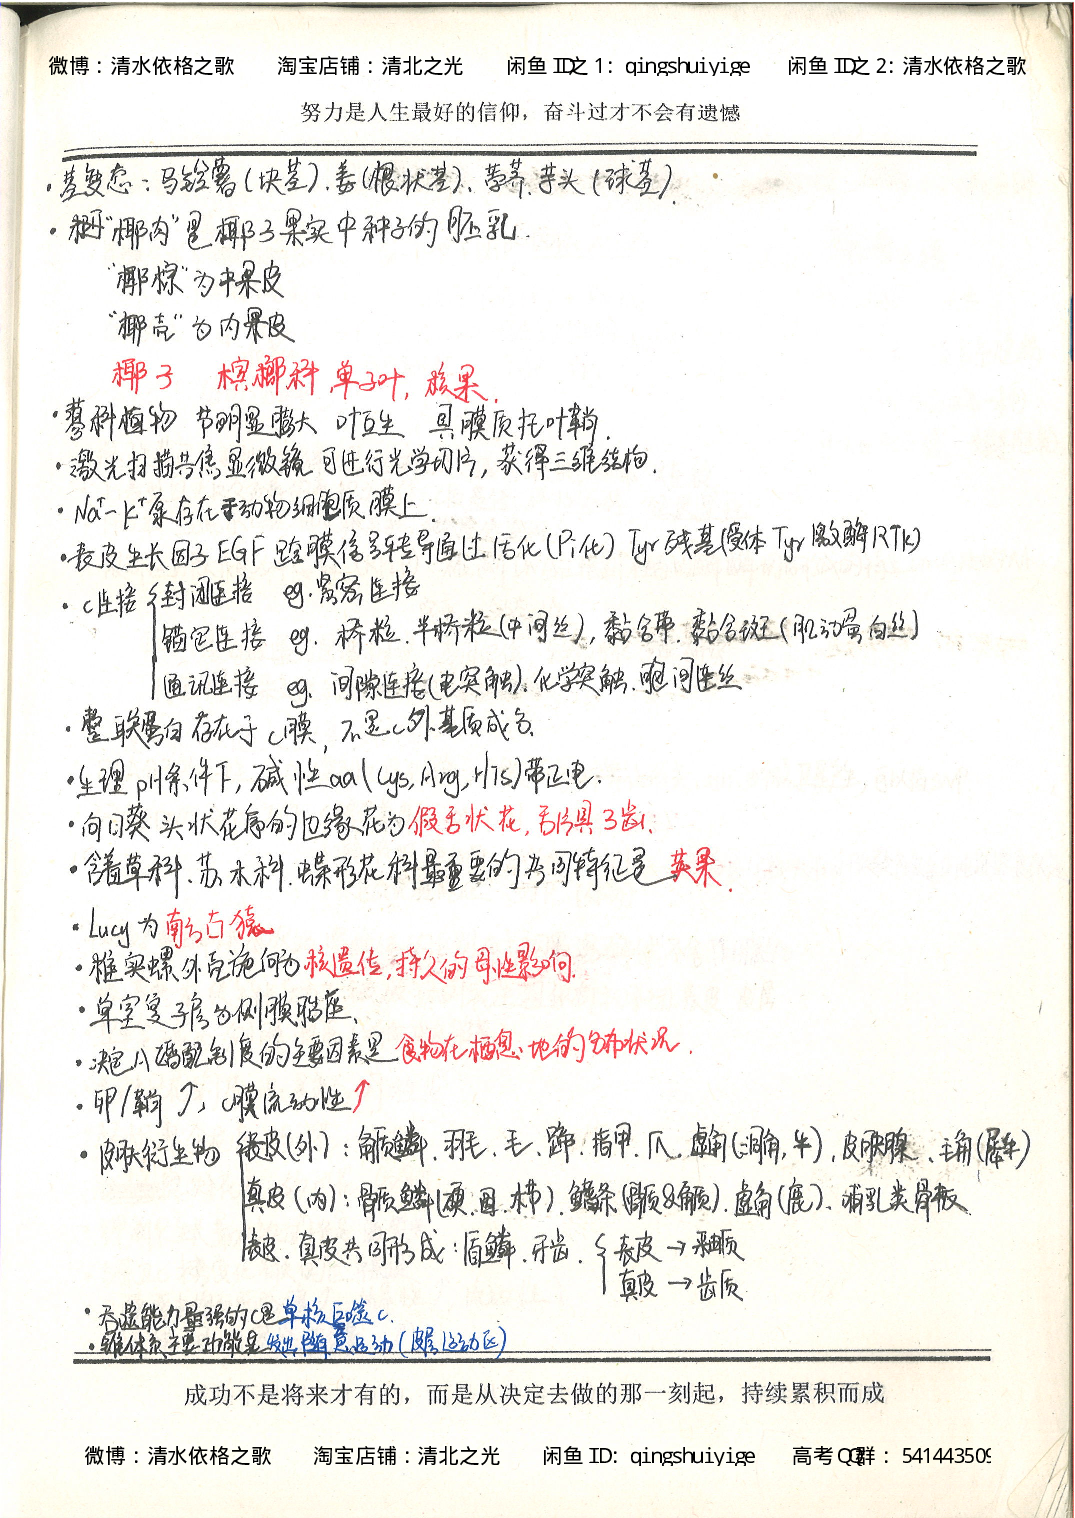 微博：清水依格之歌 淘宝店铺：清北之光 闲鱼ID之1：qingshuiyige 闲鱼ID之2：清水依格之歌
努力是人生最好的信仰，奋斗过才不会有遗憾
·茎变态：马铃薯(块茎)、姜(根状茎)、荸荠、芋头(球茎)、
·"椰肉"是椰子果实中种子的胚乳．
"椰棕"为中果皮
"椰壳"为内果皮
椰子 槟榔科,单子叶,核果．
·蓼科植物 节明显膨大 叶互生 具膜质托叶鞘．
·激光扫描共焦显微镜可进行光学切片，获得三维结构．
·Na⁺-K⁺泵存在于动物细胞质膜上．
·表皮生长因子EGF 跨膜信号转导通过活化(Pi化) Tyr残基(受体Tyr激酶RTK)
·c连接 封闭连接 eg.紧密连接
锚定连接 eg. 桥粒.半桥粒(中间丝)，黏合带．黏合斑(肌动蛋白丝)
通讯连接 eg. 间隙连接(电突触)．化学突触．胞间连丝
·整联蛋白存在于c膜，不是c外基质成分．
·生理pH条件下，碱性aa(Lys,Arg,His)带正电．
·向日葵头状花序的边缘花为假舌状花，舌片具3齿．
·含羞草科．苏木科．蝶形花科最重要的共同特征是 荚果．
·Lucy为南方古猿
·椎实螺外壳旋向为核遗传，持久的母性影响．
·单室复子房为侧膜胎座．
·决定八碼配制度的主要因素是食物在栖息地的分布状况．
·卵/鞘↑，c膜流动性↑
·皮肤衍生物 表皮(外)：角质鳞．羽毛．毛．蹄．指甲．爪．虚角(洞角,牛)，皮肤腺．毛角(犀牛)
真皮(内)：骨质鳞(硬．圆．栉)．鳍条(骨质&角质)．虚角(鹿)．哺乳类骨板
表皮．真皮共同形成：盾鳞．牙齿． 表皮→釉质
真皮→齿质
·吞噬能力最强的c是单核巨噬c．
·锥体系主要功能是发出随意运动(皮层运动区)
成功不是将来才有的，而是从决定去做的那一刻起，持续累积而成
微博：清水依格之歌 淘宝店铺：清北之光 闲鱼ID：qingshuiyige 高考QQ群：541443509